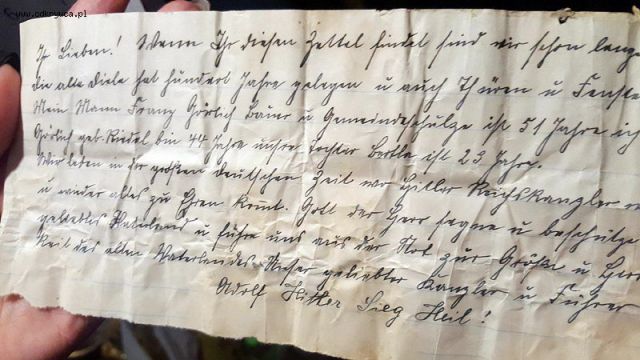 www.odkrywca.pl
Ihr Lieben! Wenn Ihr diesen Zettel findet sind wir schon lange
die alte Diele hat hundert Jahre gelegen u auch Thüren u Fenste
Mein Mann Franz Görlich Bauer u Gemeindeschulze ist 51 Jahre ich
Görlich geb. Riedel bin 44 Jahre unsre Tochter Bertle ist 23 Jahre.
Wir leben in der großen deutschen Zeit wo Hitler Reichskanzler
u wieder altes zu Ehren kömt. Gott der Herr segne u beschütze
geliebtes Vaterland u führe uns aus der Not zur Größe u Herr
keit des alten Vaterlandes geliebter Kanzler u Führer
Adolf Hitler Sieg Heil!